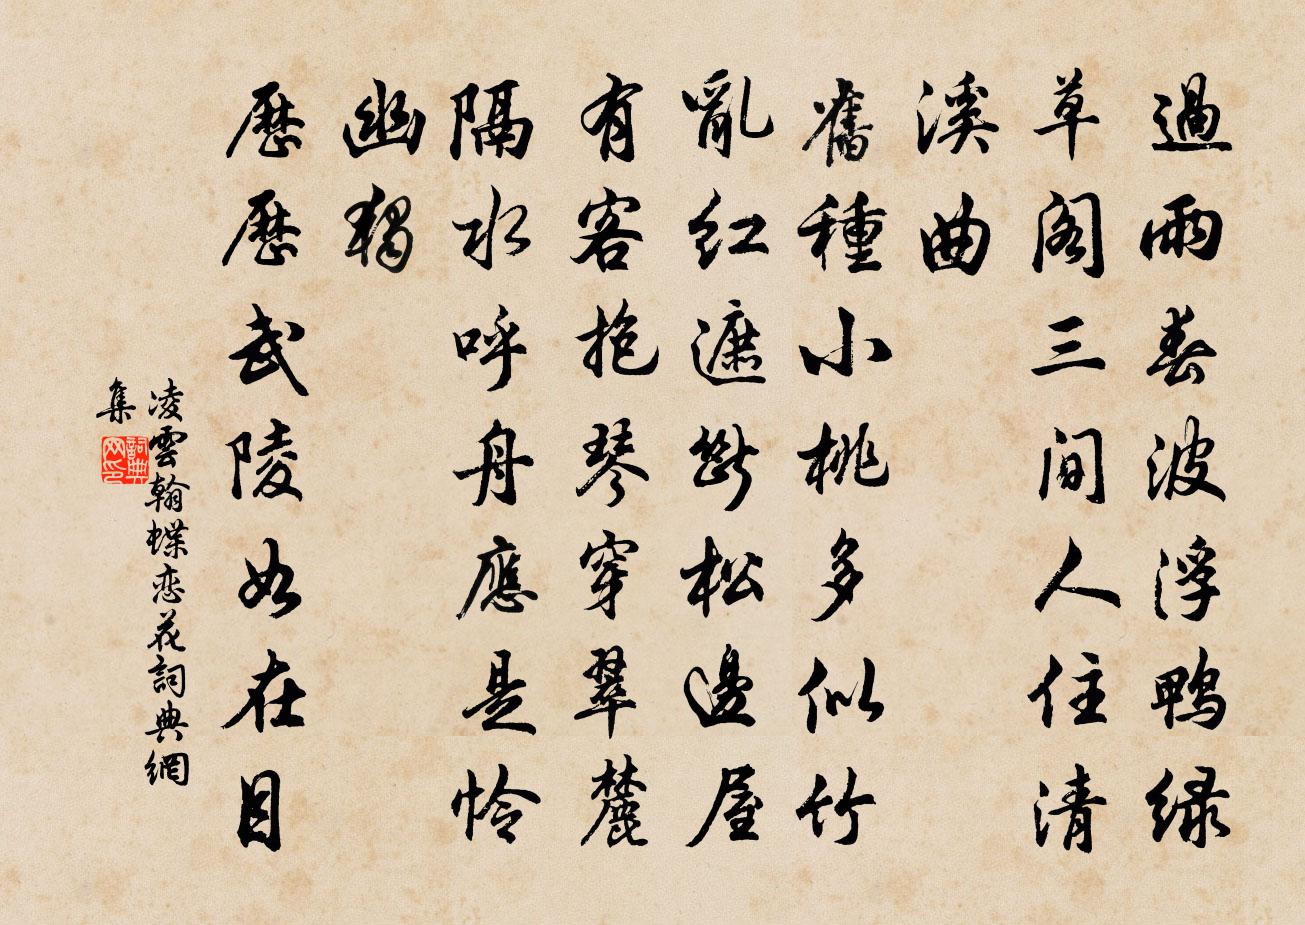 過雨春波浮鴨綠
草閣三間人住清
溪曲
舊種小桃多似竹
亂紅遮斷松邊屋
有客抱琴穿翠麓
隔水呼舟應是憐
幽獨
歷歷武陵如在目
凌雲翰蝶恋花詞典網
集
詞典
网印